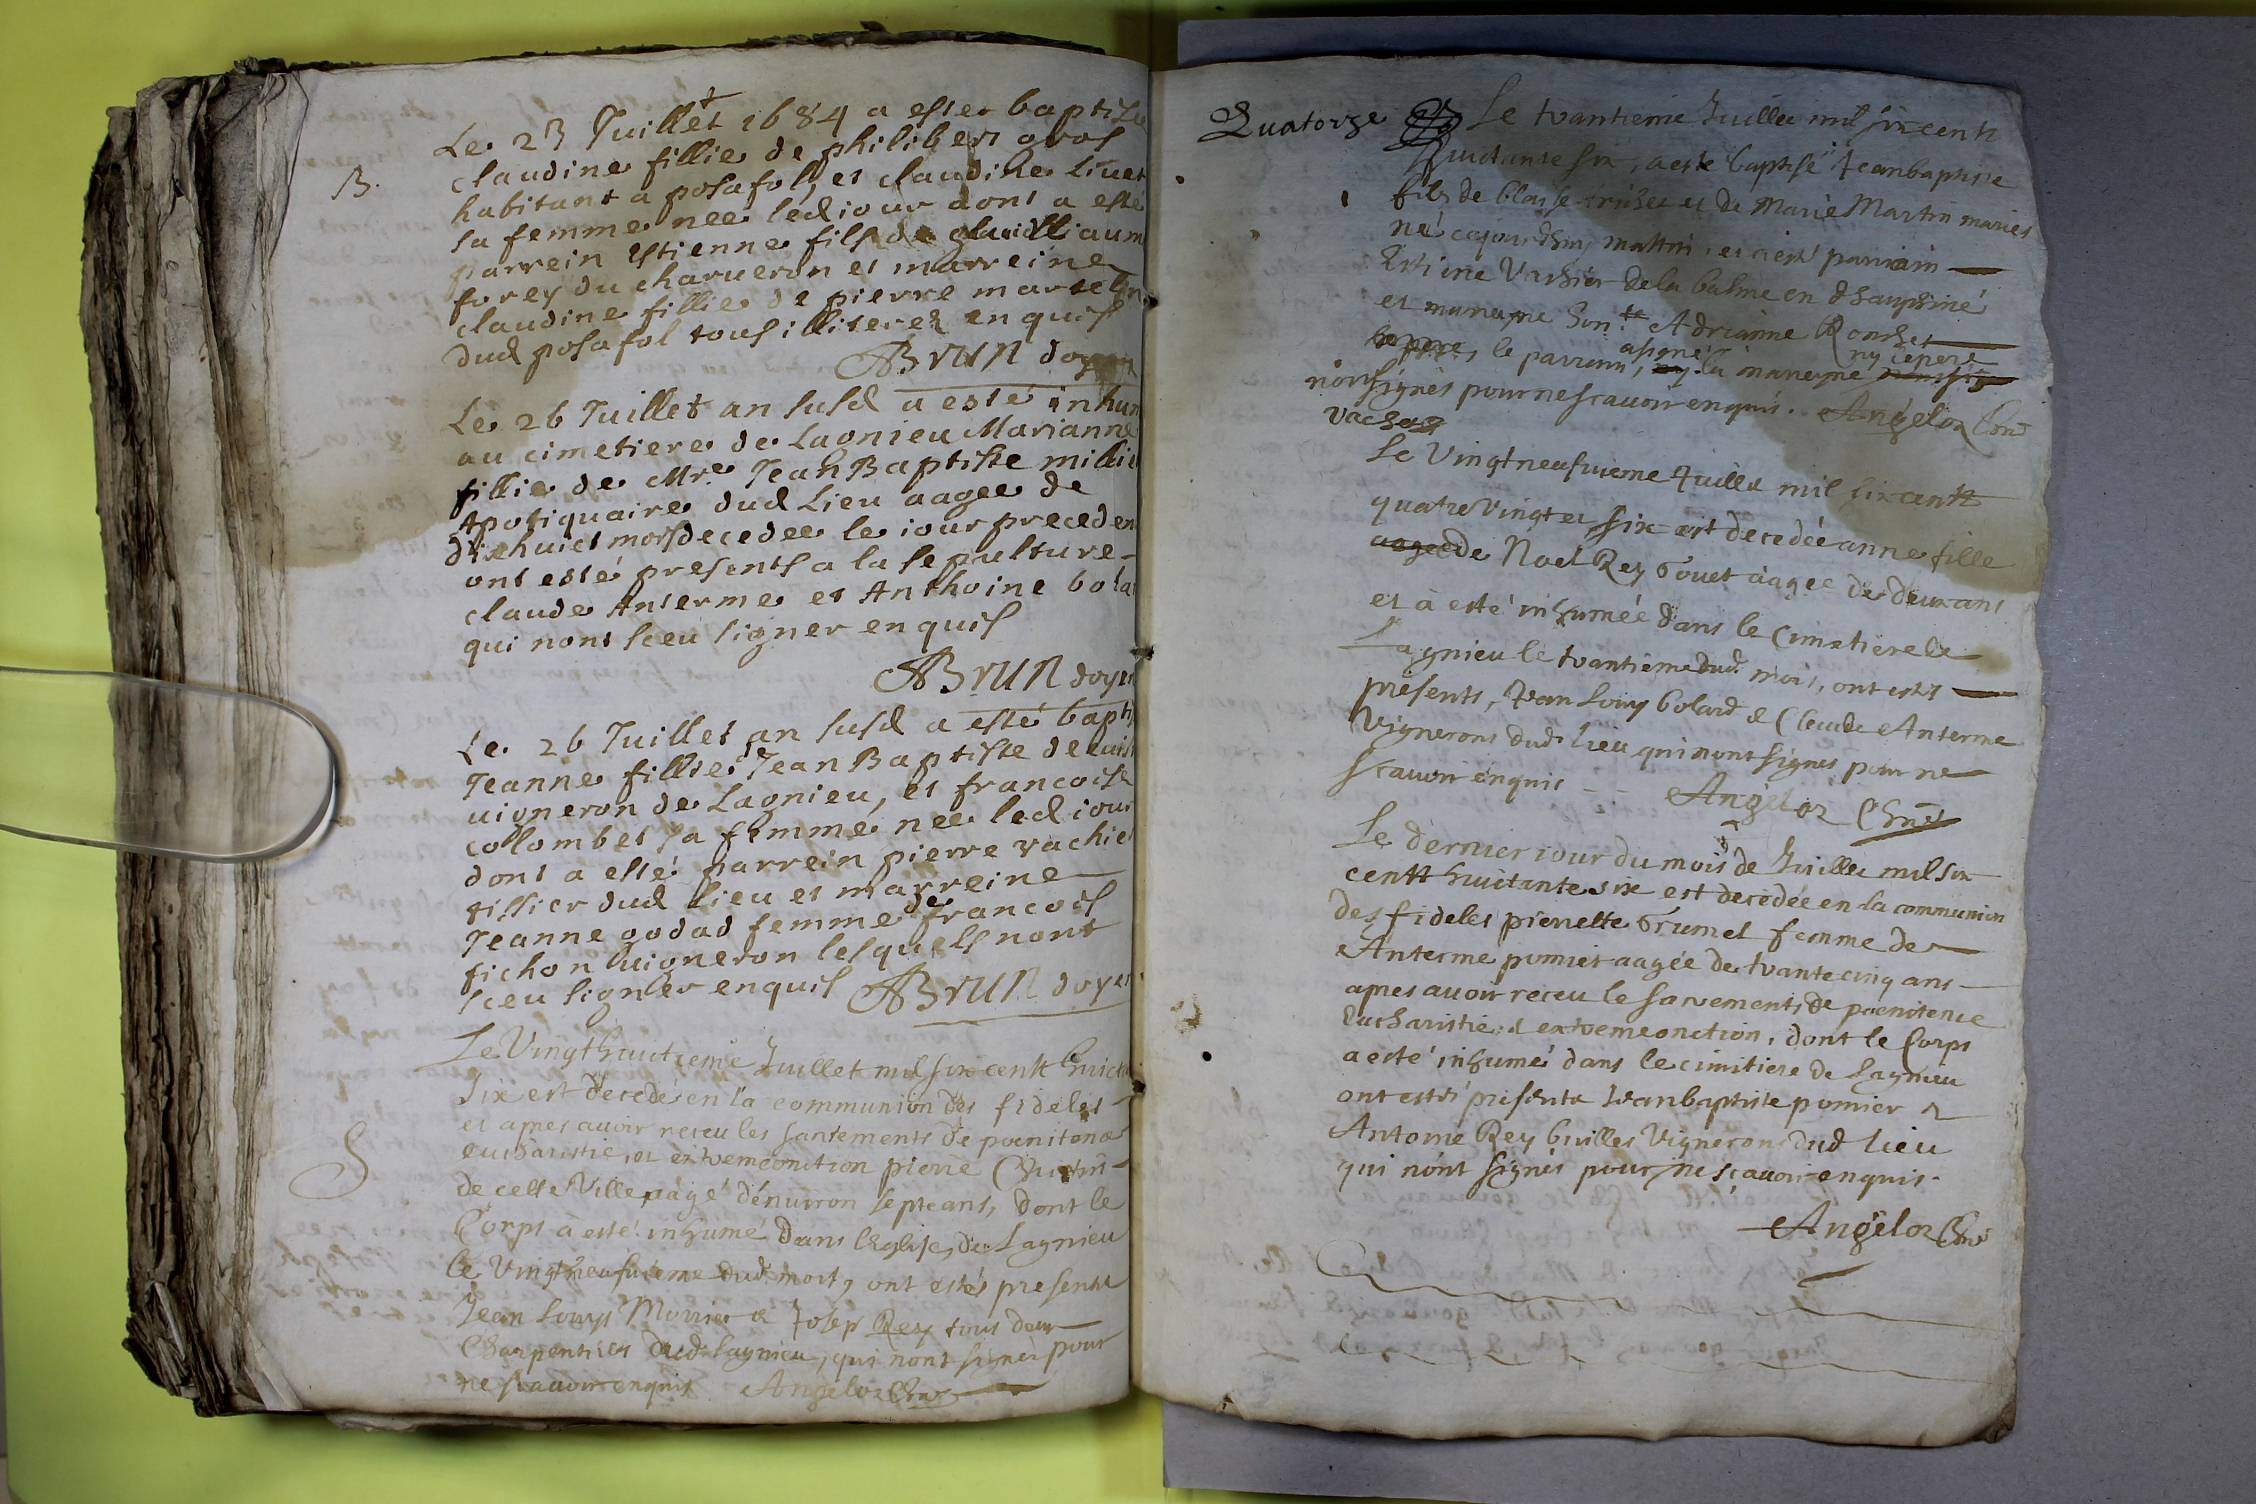 Le 23 Juillet 1684 a ester baptise
B.
claudine fillie de philibert gros
habitant a posafol, et claudine Liuet
sa femme nee ledjour dont a esté
parrein estienne fils de gluidlliaum
forey du charueron et marreine
claudine fillie de pierre marcelin
dud posafol tous illiterez enquis
ABrun doyen
Le 26 Juillet an susd a esté inhum
au cimetiere de Lagnieu Marianne
fillie de Mre Jean Baptiste millie
Apotiquaire dud Lieu aagee de
dix huict mois decedee le iour preceden
ont esté presents a la sepulture
claude Anterme et Anthoine bola
qui nont sceu signer enquis
ABrun doyen
Le 26 Juillet an susd a esté bapti
Jeanne fillie Jean Baptiste
uigneron de Lagnieu, et francoise
collombet sa femme nee led iour
dont a esté parrein pierre vachie
tissier dud Lieu et marreine
Jeanne godad femme de francois
fichon uigneron lesquels nont
sceu signer enquis ABrun doyen
Le Vingt huictieme Juillet mil six centt huict
six est decedé en la communion des fideles
S
et apres auoir receu les sacrements de poenitence
eucharistie, et extremeonction pierre
de cette Ville, aagé d'énuiron septe ans, dont le
Corps à esté inhumé dans l'Eglise, de Lagnieu
le Vingtneufuieme dud mois, ont estés presentt
Jean Louys Morrier & Josep Rey tous deux
Charpentiers dud Lagnieu, qui nont signés pour
ne scauoir enquis Angeloz Chne
Quatorze Le trantieme Juillet mil six centt
huictante six, a esté baptisé Jeanbaptiste
fils de Claise et de Marie Martin mariés
né cejourd'huy mattin, et a esté parrain
Estiene Vachier de la balme en d'hauphiné
et marayne hon.te Adrianne Ronchet
le parrain, a signé la marayne ny le pere
nont signés pour ne scauoir enquis. Angeloz Chne
vacher
Le Vingtneufuieme Juillet mil six centt
quatre Vingt et six est decedée anne fille
aagee de Noel Rey Gouet àagee de deux ans
et à esté inhumée dans le Cimetiere de
Lagnieu le trantieme dud. mois, ont estés
présents, Jean Louy bolard & Claude Anterme
Vignerons dud lieu qui n'ont signés pour ne
scauoir enquis - - Angeloz Chne
Le dernier iour du mois de Juillet mil six
centt huictante six est decedée en la communion
des fideles pierrette Grumet femme de
Anterme pomier aagée de trante cinq ans
apres auoir receu le sacrements de poenitence
Eucharistie, & extremeonction, dont le Corps
a esté inhumé dans le cimitiere de Lagnieu
ont estés presents Jeanbaptiste pomier &
Antoine Rey Vignerons dud lieu
qui nont signés pour ne sçauoir enquis.
Angeloz Chne